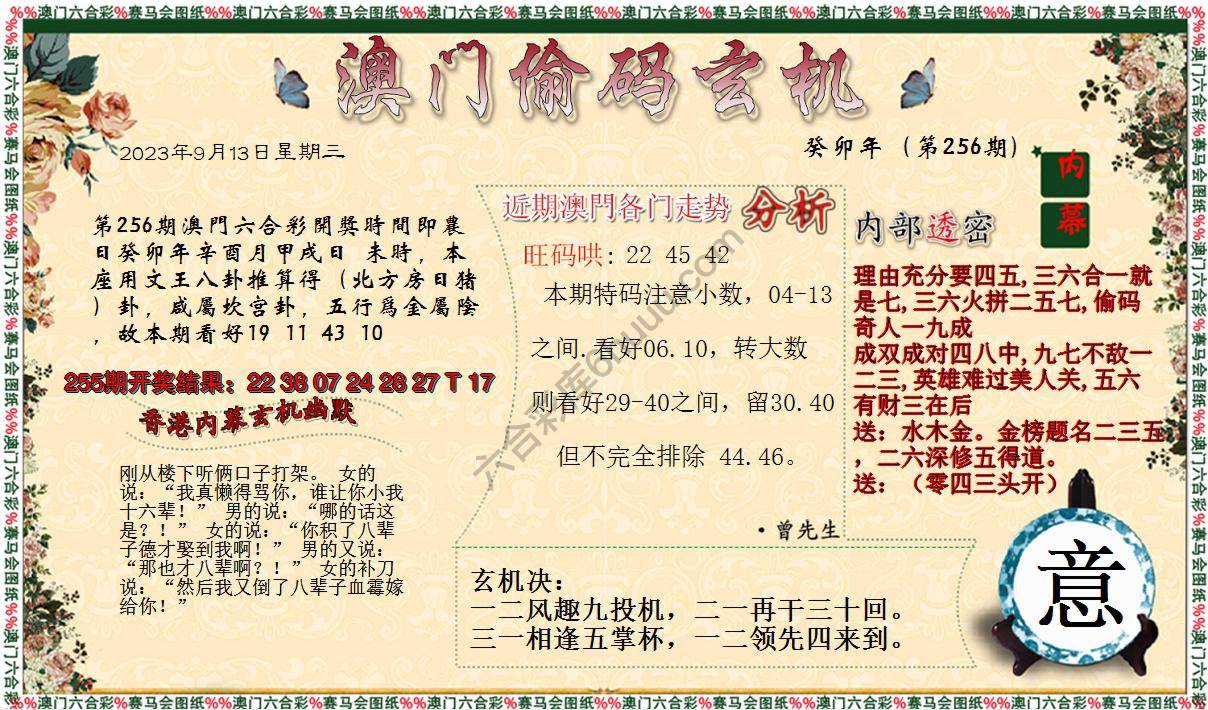 %%澳门六合彩%赛马会图纸%%澳门六合彩%赛马会图纸%%澳门六合彩%赛马会图纸%%澳门六合彩%赛马会图纸%%澳门六合彩%赛马会图纸%%澳门六合彩%赛马会图纸%%
澳门偷码玄机
2023年9月13日星期三
癸卯年（第256期）
内
幕
第256期澳門六合彩開獎時間即農
日癸卯年辛酉月甲戌日 未時，本
座用文王八卦推算得（北方房日猪
）卦，咸屬坎宫卦，五行爲金屬陰
，故本期看好19 11 43 10
255期开奖结果：22 38 07 24 28 27 T 17
香港内幕玄机幽默
刚从楼下听俩口子打架。 女的
说：“我真懒得骂你，谁让你小我
十六辈！” 男的说：“哪的话这
是？！” 女的说：“你积了八辈
子德才娶到我啊！” 男的又说：
“那也才八辈啊？！” 女的补刀
说：“然后我又倒了八辈子血霉嫁
给你！”
近期澳門各门走势 分析
旺码哄: 22 45 42
本期特码注意小数，04-13
之间.看好06.10，转大数
则看好29-40之间，留30.40
但不完全排除 44.46。
·曾先生
内部透密
理由充分要四五,三六合一就
是七,三六火拼二五七,偷码
奇人一九成
成双成对四八中,九七不敌一
二三,英雄难过美人关,五六
有财三在后
送：水木金。金榜题名二三五
，二六深修五得道。
送：（零四三头开）
玄机决：
一二风趣九投机，二一再干三十回。
三一相逢五掌杯，一二领先四来到。
意